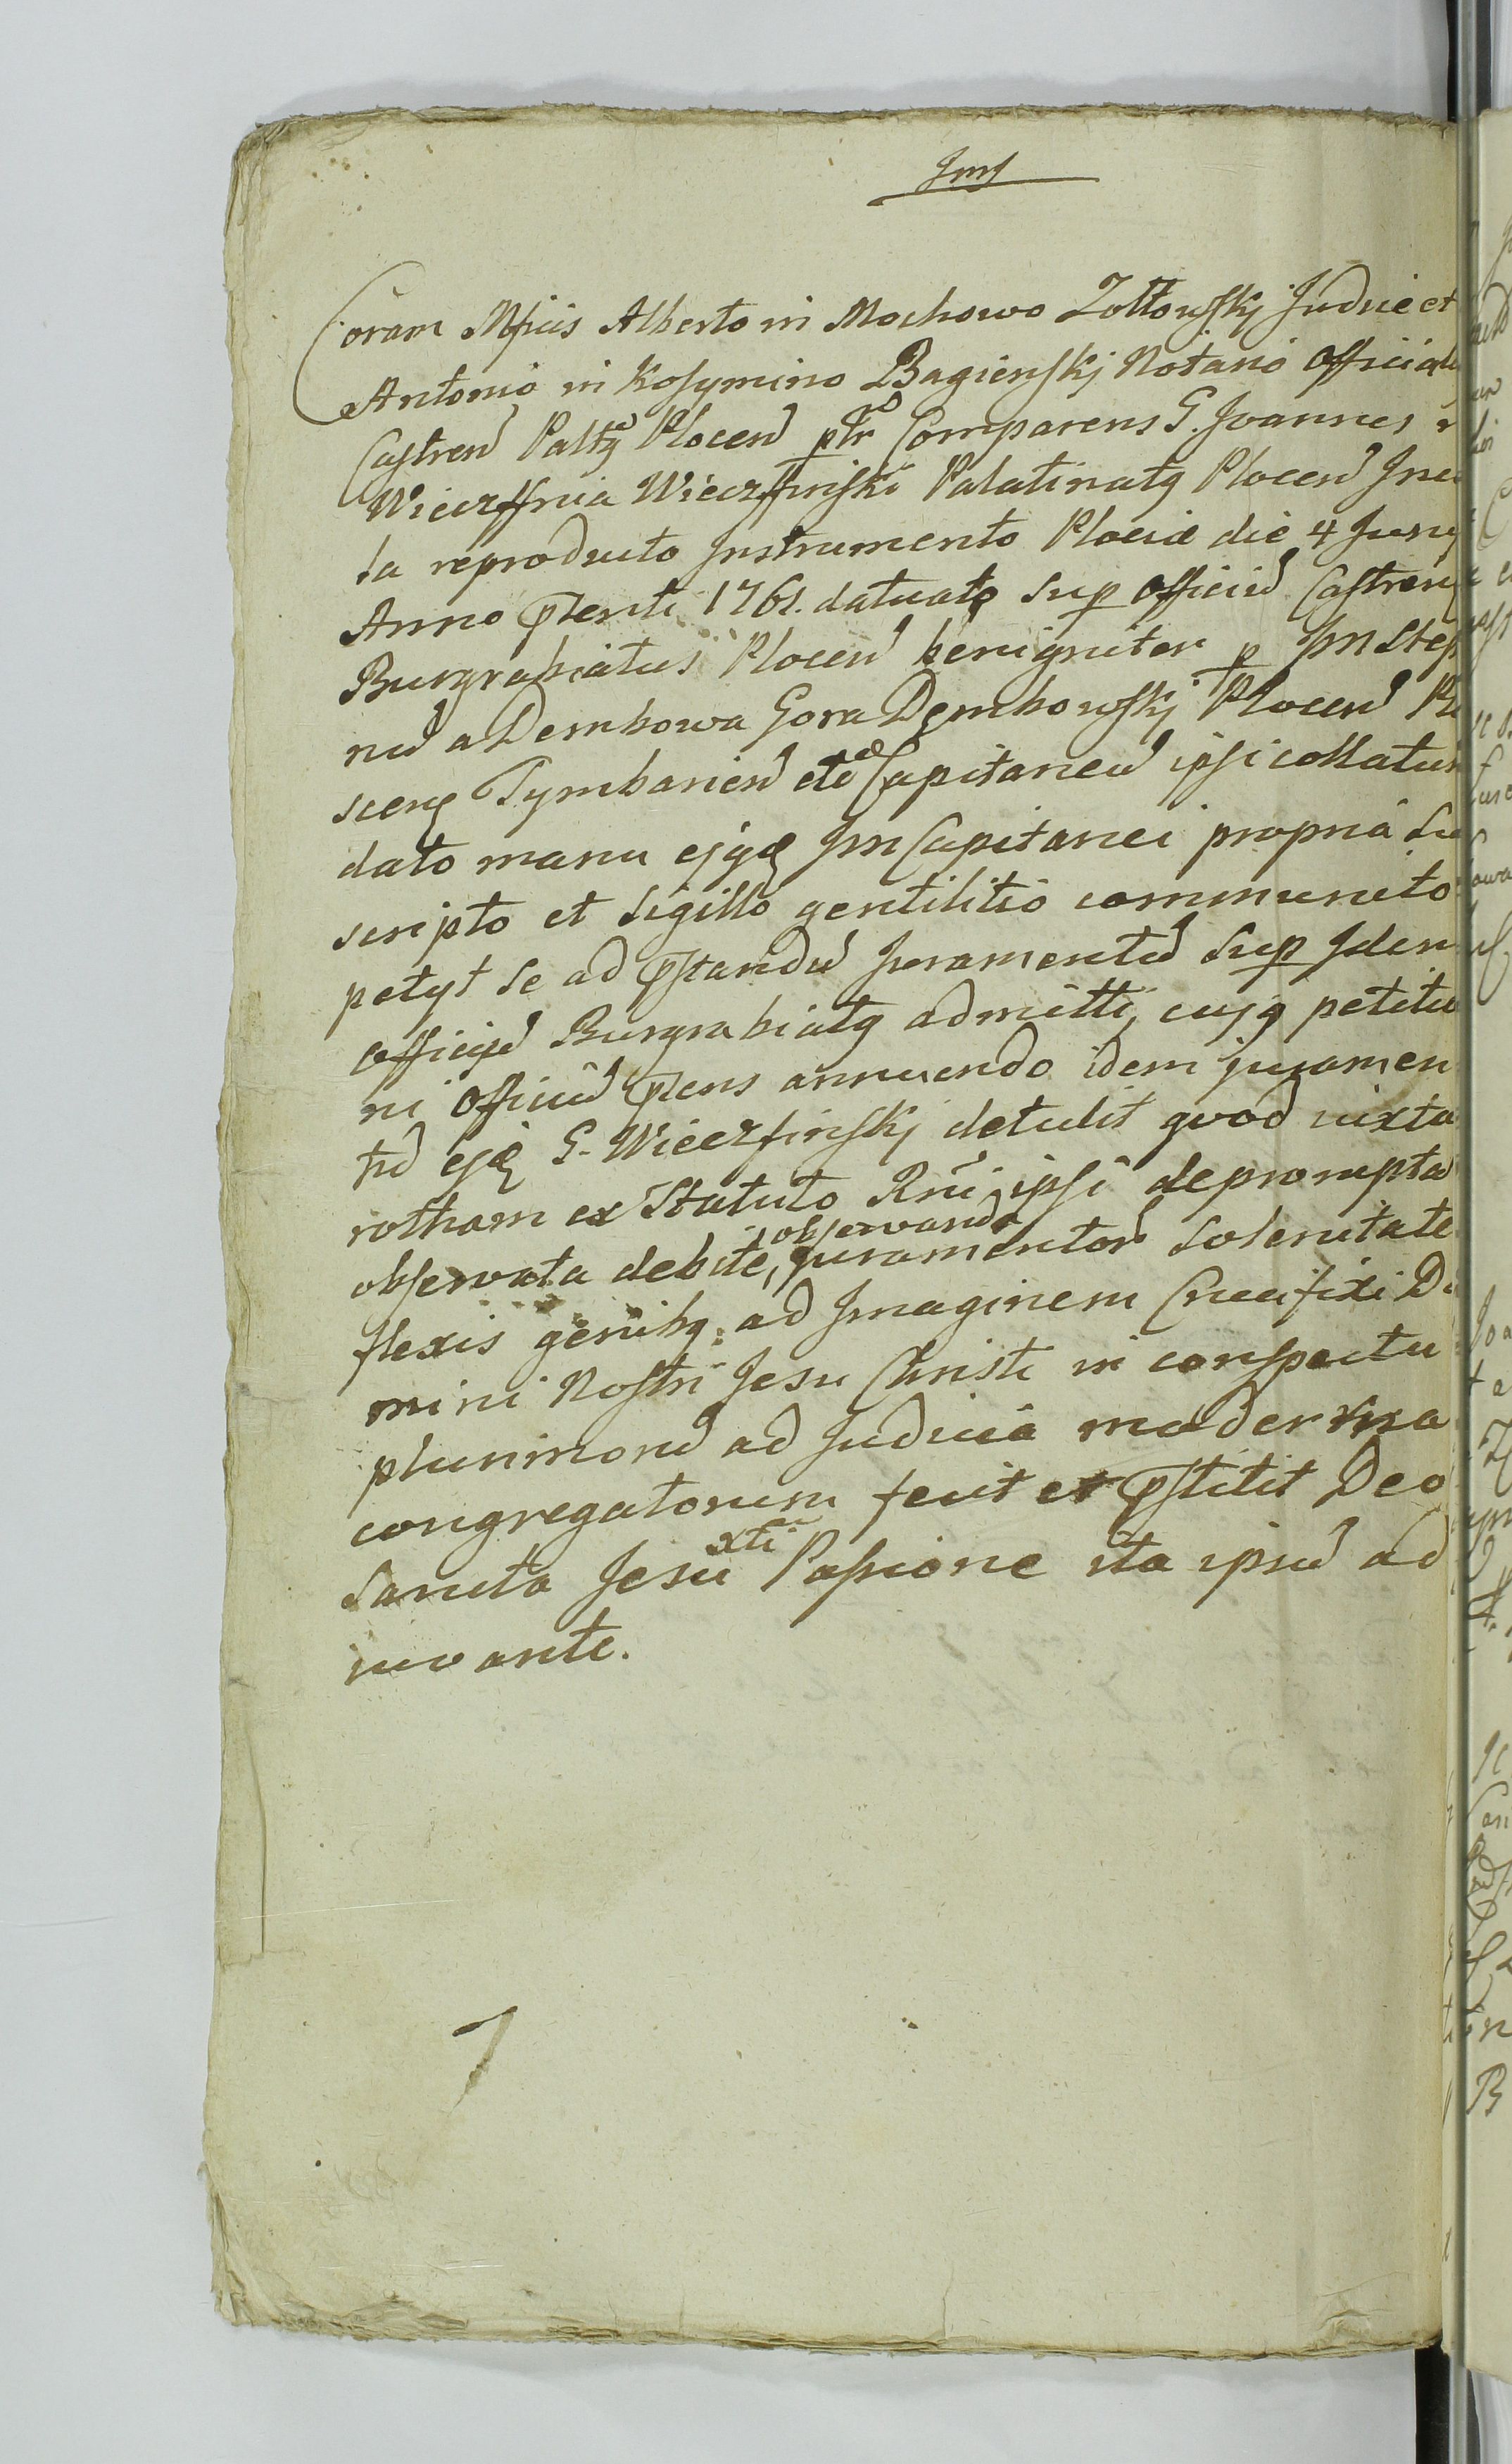 Coram Mficis Alberto in Mochowo Zołtowskj Judice et
Antonio in Kosymino Bagienskj Notario Official
Castren Paltg Plocen ptr Comparens G. Joannes
Wieczffnia Wieczffinski Palatinatg Plocen Inco
la reproducto Instrumento Plociæ die 4 Juny
Anno pñti 1761. datuato sup officiu Castren
Burgrabiatus Plocen benigniter p Jm Step
nu a Dembowa Gora Dembowskj Plocen Plo
scenq Tymbarien etc Capitaneu ipsi collatum
dato manu ejqæ Jm Capitanei propria Sub
scripto et Sigillo gentilitio communito
petyt se ad pstandu Juramentu sup Idem
officiu Burgrabiatg admitti, cujg petitio
ni Officiu pñs annuendo idem juramen
tu ejqæ G. Wieczfinskj detulit quod iuxta
rotham ex Statuto Rni ipsi depromptã
observata debite, observanda
juramentor Solenitate
flexis genibg ad Imaginem Crucifixi Do
mini Nostri Jesu Christi in conspectu
plurimoru ad Judicia moderna
congregatorum fecit et pstitit Deo
Sancta Jesu xti Passione ita ipsu ad
iuvante.